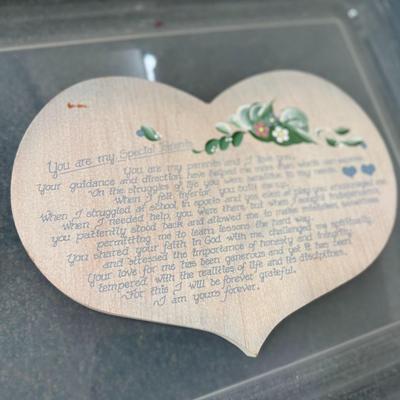 You are my Special Parents
You are my parents and I love you.
Your guidance and direction have helped me
On the struggles of life you were sensitive to my needs.
When I felt inferior, you built me up.
When I struggled at school, in sports and you encouraged me.
When I needed help, you were there, but when I sought independence,
you patiently stood back and allowed me to make
permitting me to learn lessons the hard way.
You shared your faith in God with me, challenged me spiritually,
and stressed the importance of honesty and integrity.
Your love for me has been generous and yet it has been
tempered with the realities of life and its disciplines.
For this I will be forever grateful.
I am yours forever.